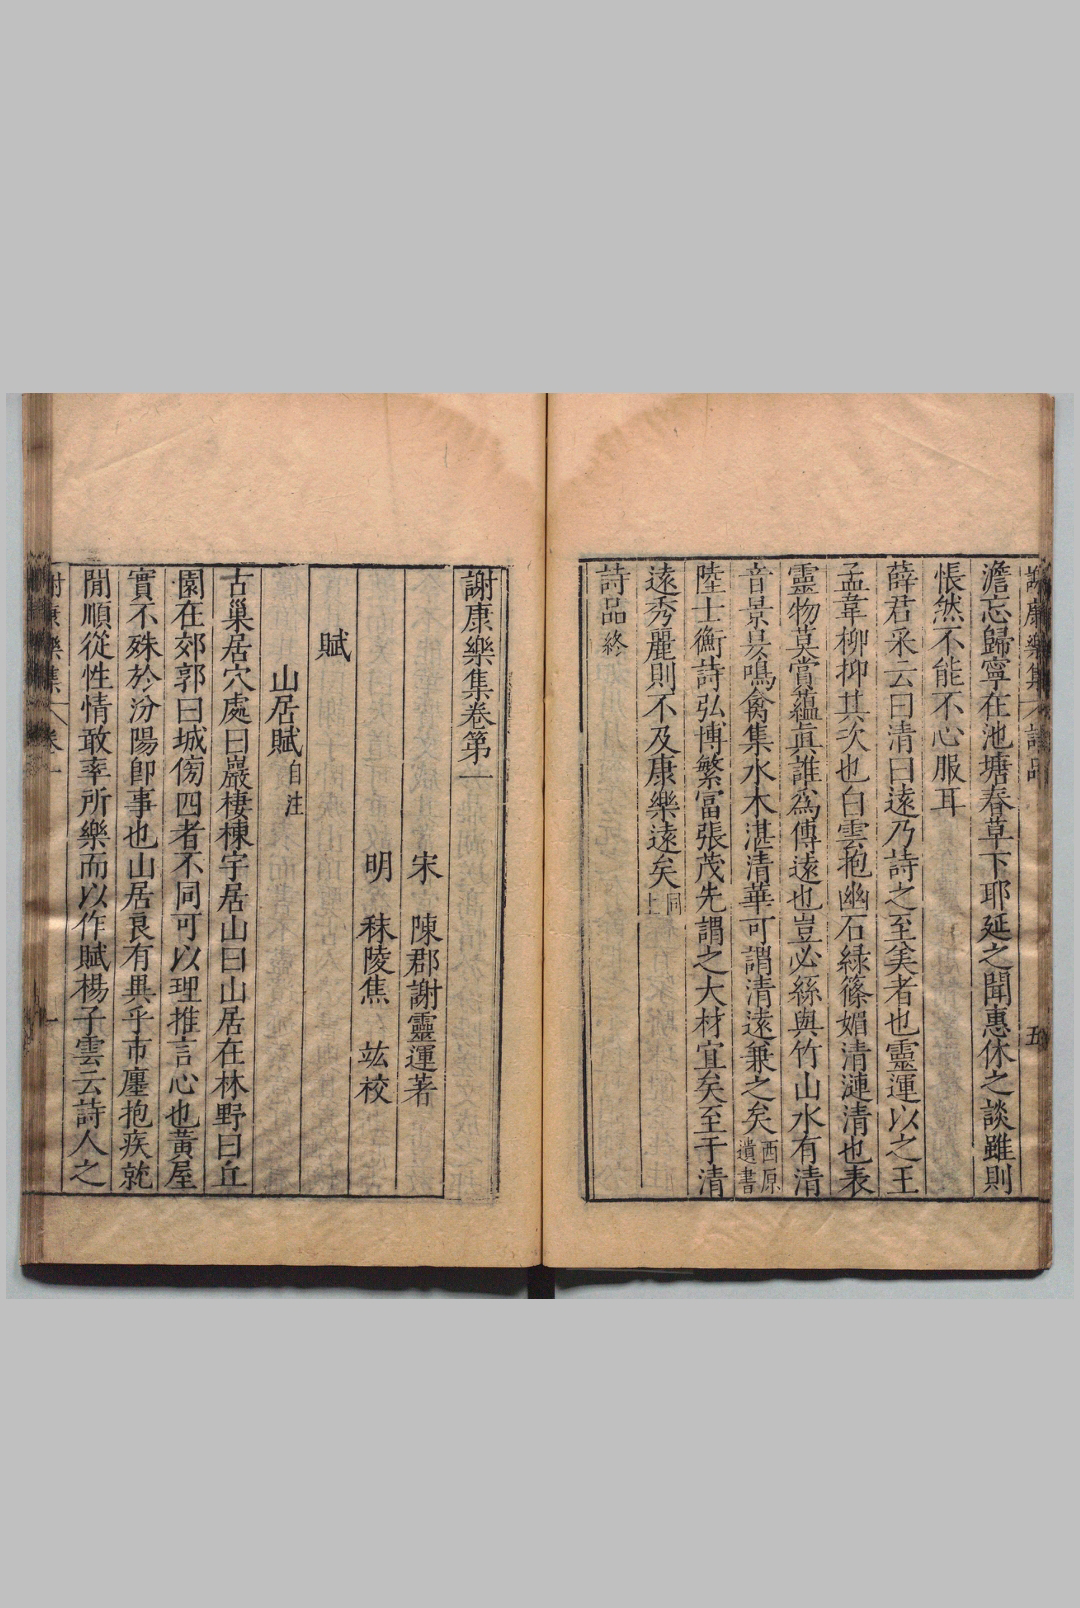 謝康樂集 詩品 五
澹忘歸寧在池塘春草下耶延之聞惠休之談雖則
悵然不能不心服耳
薛君采云曰清曰遠乃詩之至美者也靈運以之王
孟韋柳抑其次也白雲抱幽石綠篠媚清漣清也表
靈物莫賞蘊眞誰爲傳遠也豈必絲與竹山水有清
音景昃鳴禽集水木湛清華可謂清遠兼之矣西原遺書
陸士衡詩弘博繁富張茂先謂之大材宜矣至于清
遠秀麗則不及康樂遠矣同上
詩品終
謝康樂集卷第一
宋 陳郡謝靈運著
明 秣陵焦 竑校
賦
山居賦自注
古巢居穴處曰巖棲棟宇居山曰山居在林野曰丘
園在郊郭曰城傍四者不同可以理推言心也黃屋
實不殊於汾陽卽事也山居良有異乎市廛抱疾就
閒順從性情敢率所樂而以作賦楊子雲云詩人之
謝康樂集 卷一 一